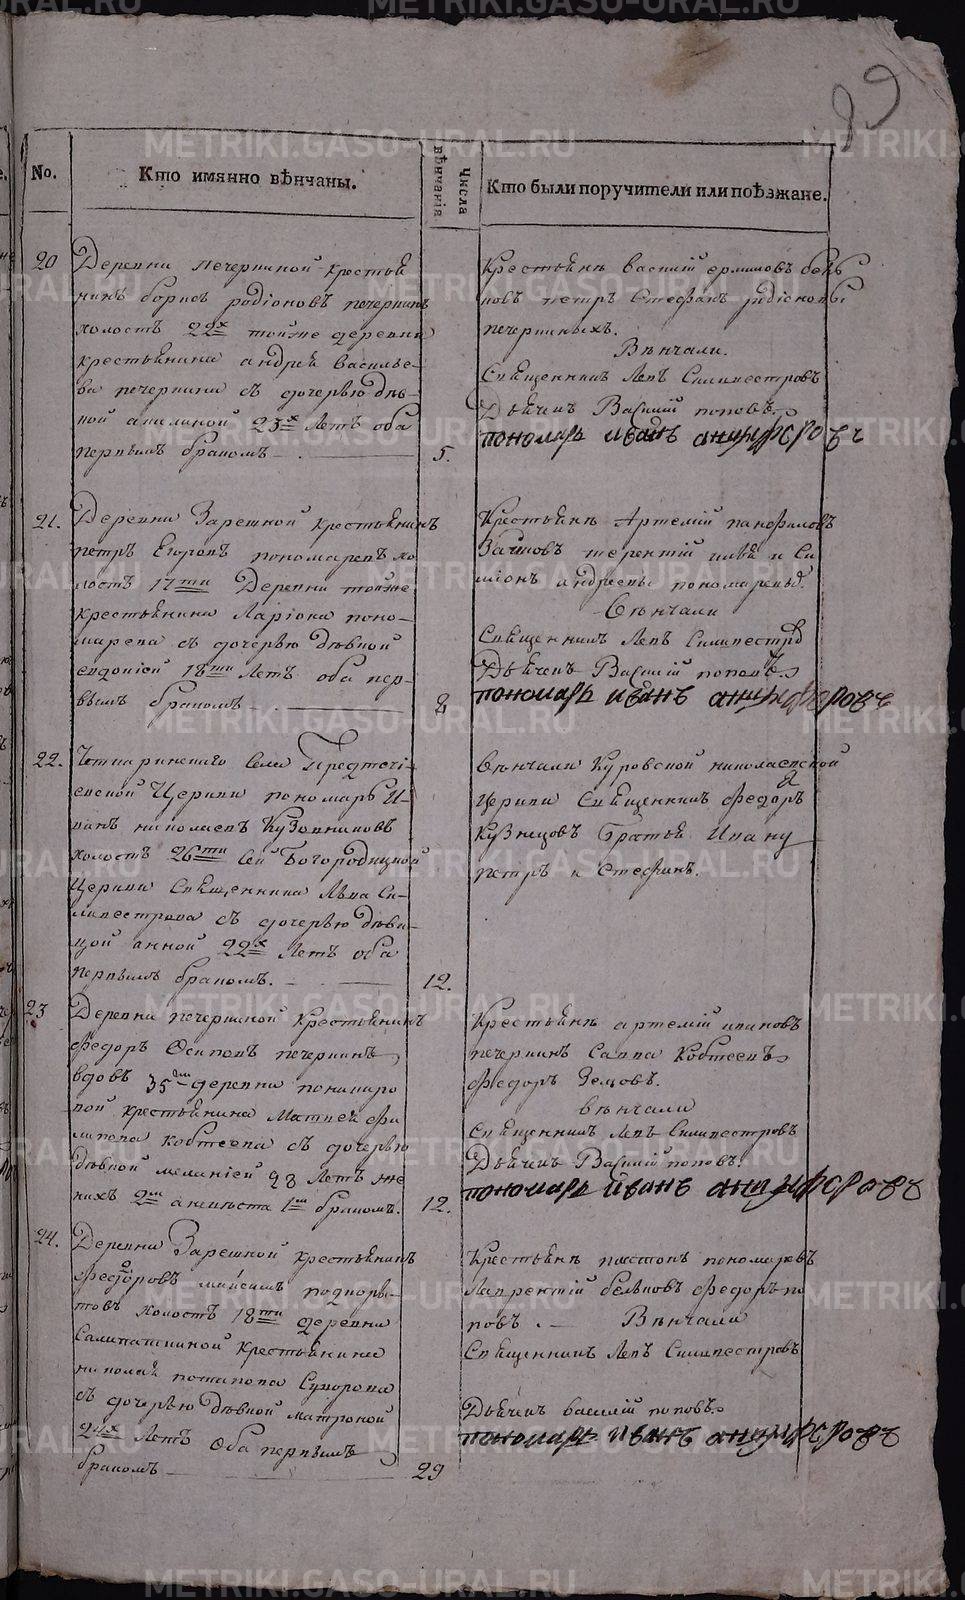 89
No.
Кто имянно вѣнчаны.
Числа вѣнчанія
Кто были поручители или поѣзжане.
20
Деревни печеркиной крестья
нинъ борисъ родіоновъ печеркинъ
холостъ 22х тойже деревни
крестьянина андрея василье-
ва печеркина съ дочерью дѣв-
кой акилиной 23х Летъ оба
первымъ бракомъ
5.
Крестьяне василій
петръ Стефанъ родіоновы
печеркиныхъ.
Вѣнчали.
Священникъ Левъ Силивестровъ
Дьячекъ Василій поповъ
пономарь иванъ анцыферовъ
21.
Деревни Зарешной крестьянинъ
петръ Егоровъ пономаревъ хо-
лостъ 17ти Деревни тойже
крестьянина Ларіона поно-
марева съ дочерью дѣвкой
евдокіей 18ти Летъ оба пер-
вымъ бракомъ
8
Крестьяне Артемій панфиловъ
Зайковъ терентій илья и Си
міонъ андреевы пономаревы.
Вѣнчали
Священникъ Левъ Силивестровъ
Дьячекъ Василій поповъ
пономарь иванъ анцыферовъ
22.
села Предтечі-
евской Церкви пономарь И-
ванъ николаевъ Кузовниковъ
холостъ 26ти Сей Богородицкой
Церкви Священника Льва Си-
ливестрова съ дочерью дѣви-
цой анной 22х Летъ оба
первымъ бракомъ.
12.
Вѣнчали Куровской николаевской
Церкви Священникъ Федоръ
Кузнецовъ Братья Ивану
петръ и Стефанъ.
23
Деревни печеркиной крестьянинъ
Федоръ Осиповъ печеркинъ
вдовъ 35 деревни понамаро
вой крестьянина Матвея фи
липева Кобтеева съ дочерью
дѣвкой меланіей 28 Летъ же
нихъ 2м а невѣста 1м бракомъ.
12.
Крестьяне артемій ивановъ
печеркинъ Савва Кобтеевъ
Федоръ Зенковъ.
вѣнчали
Священникъ Левъ Силивестровъ
Дьячекъ Василій поповъ.
пономарь иванъ анцыферовъ
24.
Деревни Зарешной крестьянинъ
Федоровъ
холостъ 18ти деревни
крестьянина
николая потапова Суворова
съ дочерью дѣвкой матроной
24х Летъ Оба первымъ
бракомъ
29
Крестьяне пономаревъ
Лаврентій Федоръ по
повъ. Вѣнчали
Священникъ Левъ Силивестровъ
Дьячекъ василій поповъ
пономарь иванъ анцыферовъ
METRIKI.GASO-URAL.RU